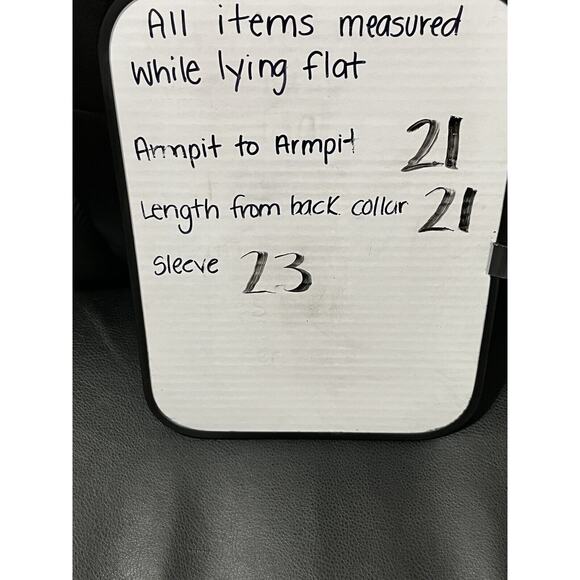 All items measured
while lying flat
Armpit to Armpit 21
Length from back collar 21
Sleeve 23